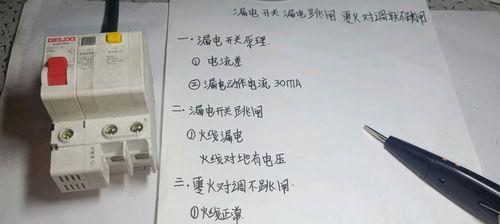 DELIXI
漏电开关漏电跳闸 零火对调就不跳闸
一.漏电开关原理
① 电流差
② 漏电动作电流 30MA
二.漏电开关跳闸
① 火线漏电
火线对地有电压
三.零火对调不跳闸
① 火线正常